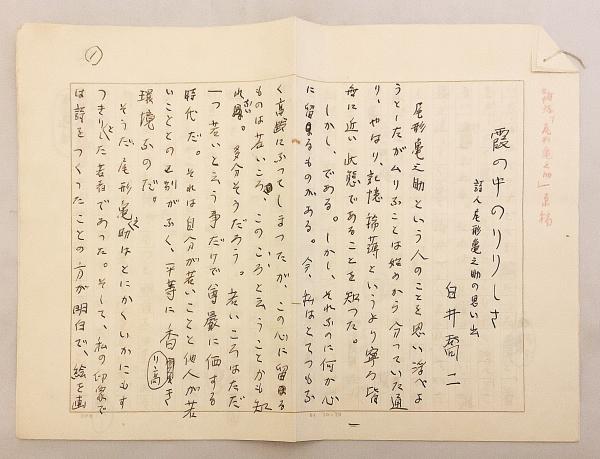 霞の中のりりしさ
詩人尾形亀之助の思い出
白井喬二
尾形亀之助という人のことを思い浮べよ
うとしたがムリなことは始めから分っていた通
り、やはり、記憶稀薄というより寧ろ皆
無に近い状態であることを知った。
しかし、である。しかし、それなのに何か心
に留まるものがある。今、私はとてつもな
く高齢になってしまったが、この心に留まる
ものは若いころ、このころと云うことかも知
れない。多分そうだろう。若いころはただ
一つ若いと云う事だけで尊厳に価する
時代だ。それは自分が若いことと他人が若
いこととの区別がなく、平等に香り高き
環境なのだ。
そうだ、尾形亀之助はとにかくいかにもす
っきりとした青年であった。そして、私の印象で
は詩をつくったことの方が明白で、絵を画
1